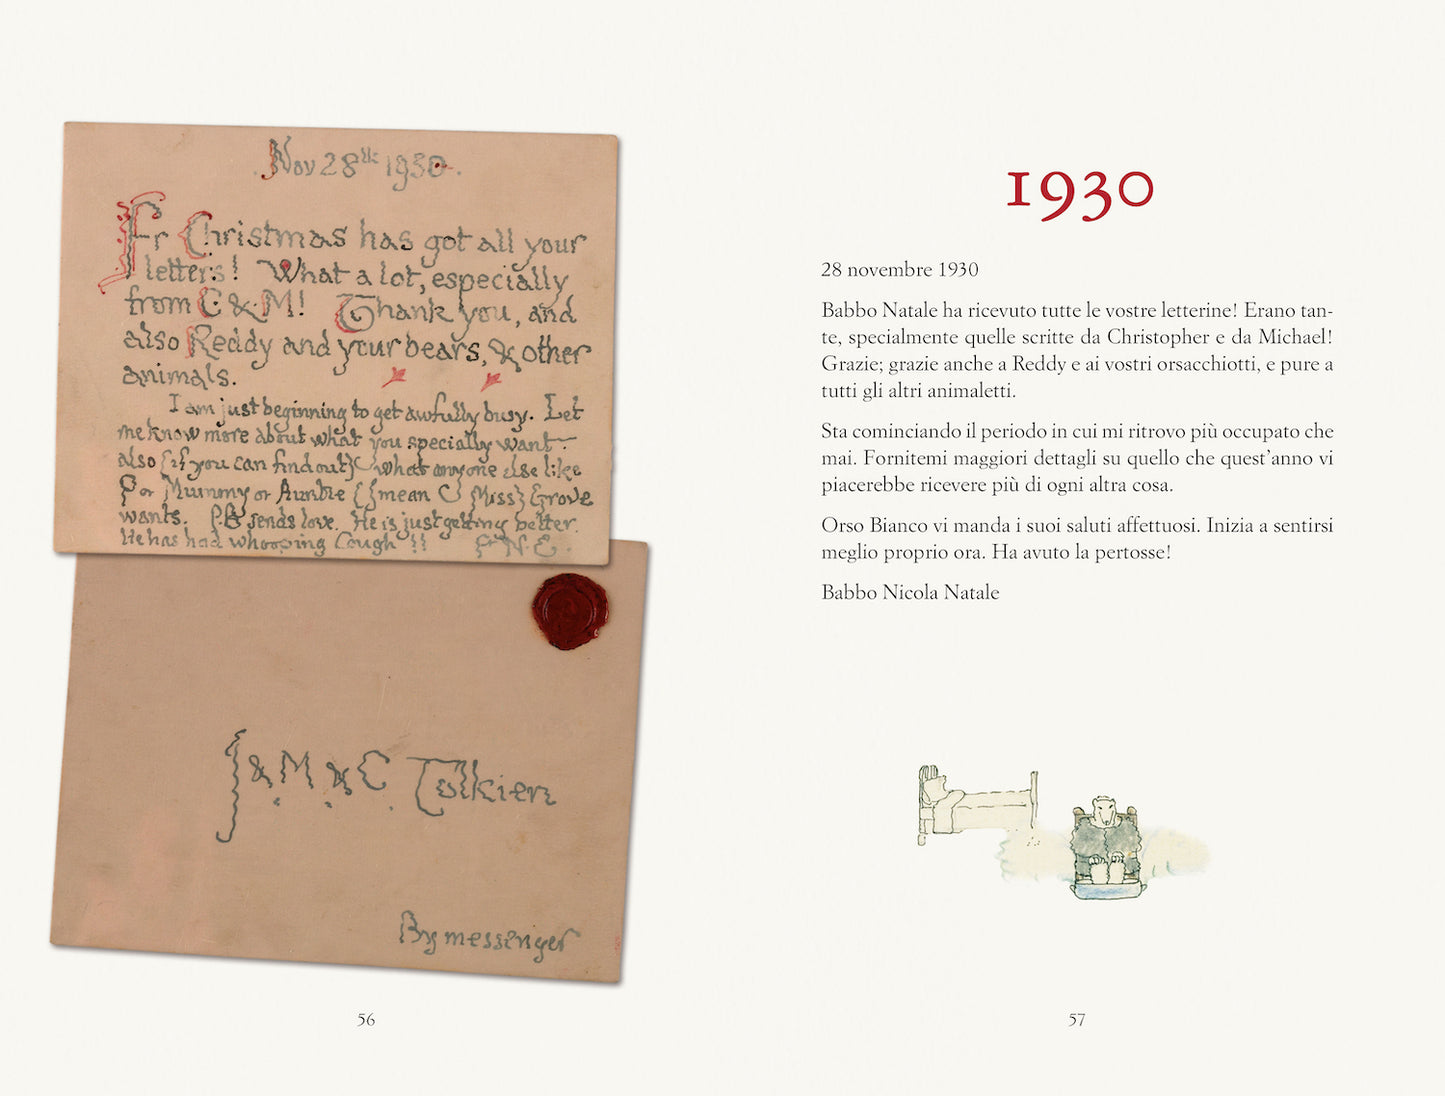 Nov 28th 1930.
Fr Christmas has got all your
letters! What a lot, especially
from C & M! Thank you, and
also Reddy and your bears, & other
animals.
I am just beginning to get awfully busy. Let
me know more about what you specially want –
also {if you can find out} what anyone else like
P or Mummy or Auntie {I mean Miss} Grove
wants. P.B sends love. He is just getting better.
He has had whooping Cough!! F N.C.
J & M & C Tolkien
By messenger
56
1930
28 novembre 1930
Babbo Natale ha ricevuto tutte le vostre letterine! Erano tan-
te, specialmente quelle scritte da Christopher e da Michael!
Grazie; grazie anche a Reddy e ai vostri orsacchiotti, e pure a
tutti gli altri animaletti.
Sta cominciando il periodo in cui mi ritrovo più occupato che
mai. Fornitemi maggiori dettagli su quello che quest’anno vi
piacerebbe ricevere più di ogni altra cosa.
Orso Bianco vi manda i suoi saluti affettuosi. Inizia a sentirsi
meglio proprio ora. Ha avuto la pertosse!
Babbo Nicola Natale
57